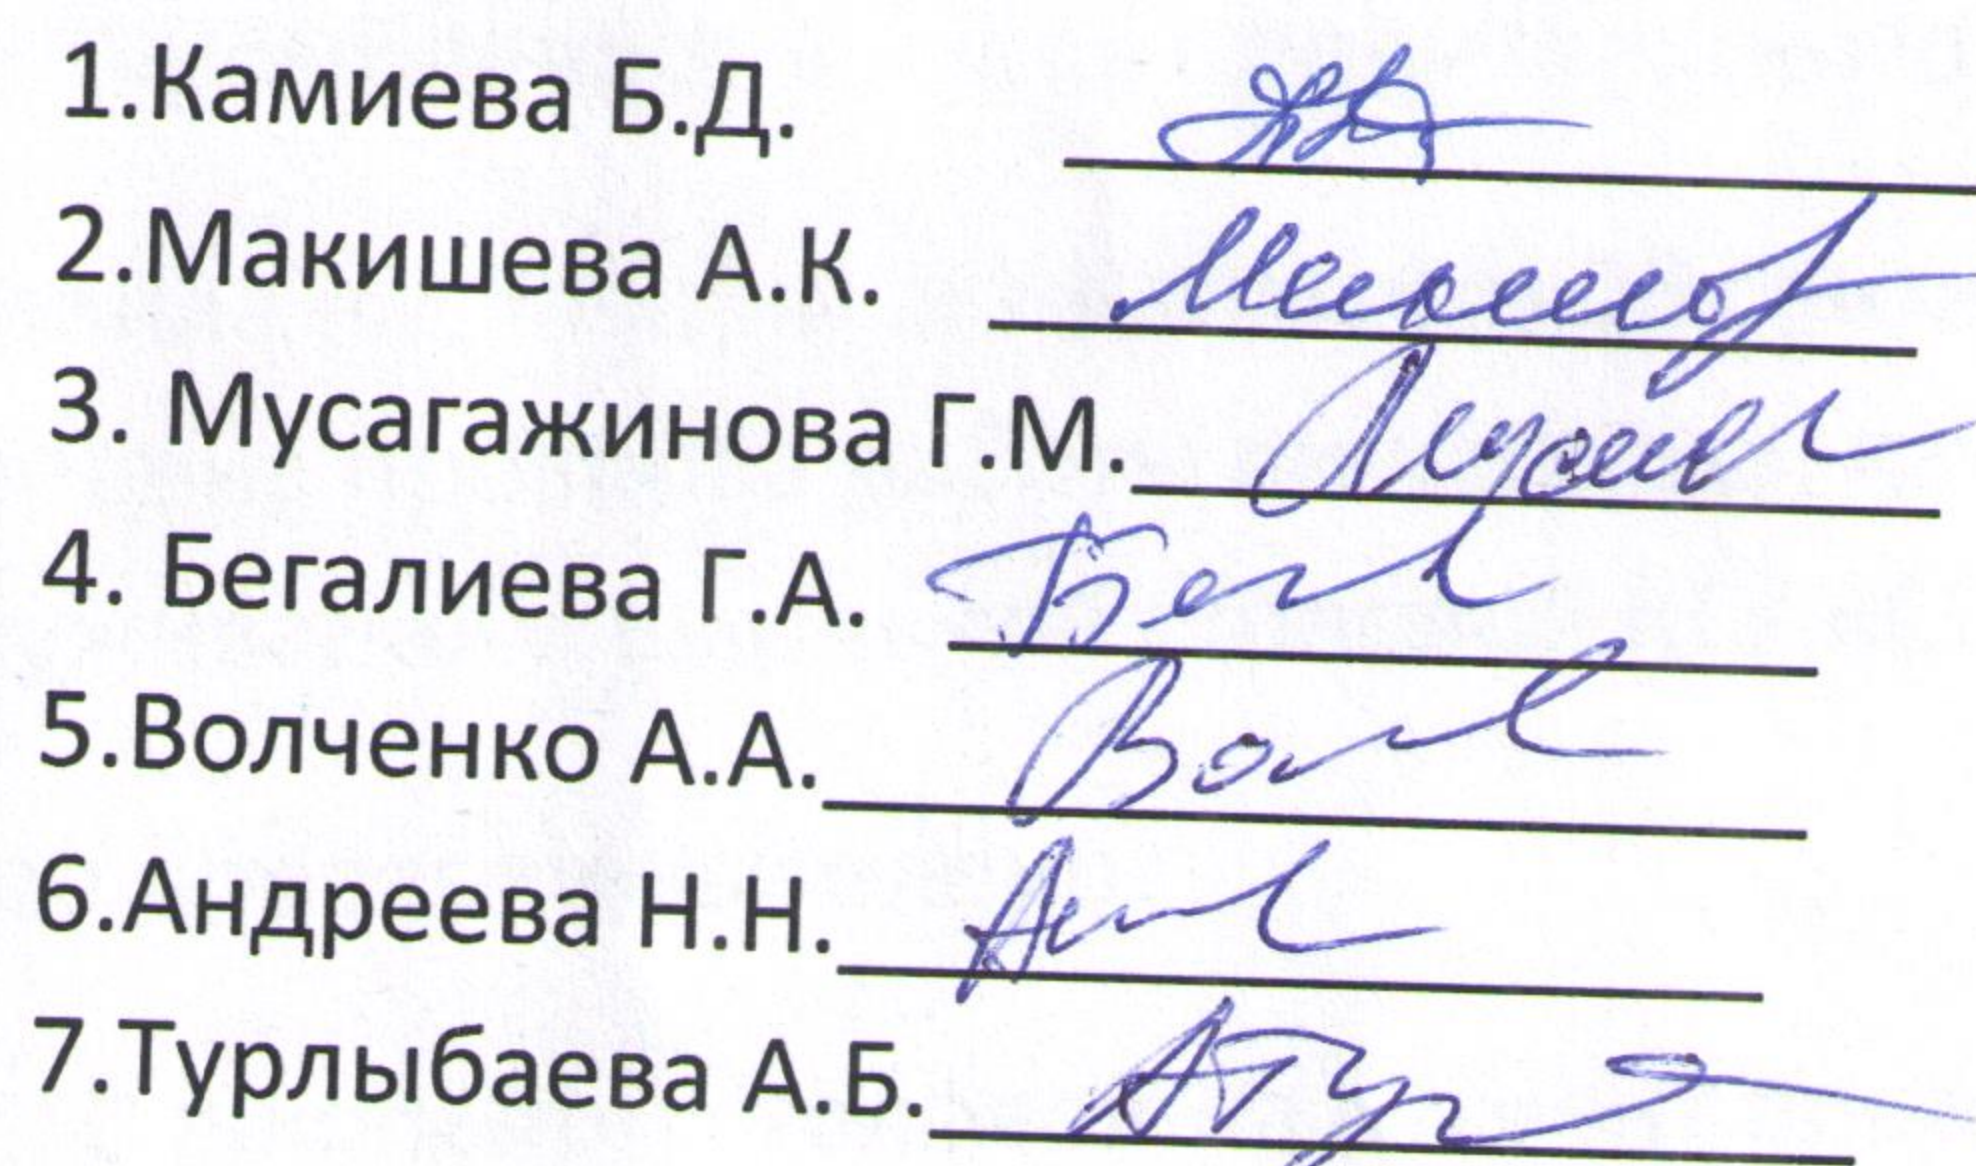 1.Камиева Б.Д.
2.Макишева А.К.
3. Мусагажинова Г.М.
4. Бегалиева Г.А.
5.Волченко А.А.
6.Андреева Н.Н.
7.Турлыбаева А.Б.